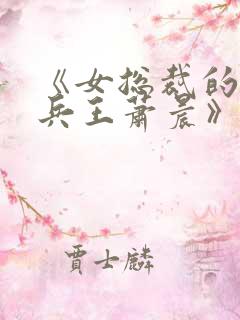 《女总裁的
兵王萧晨》
贾士麟